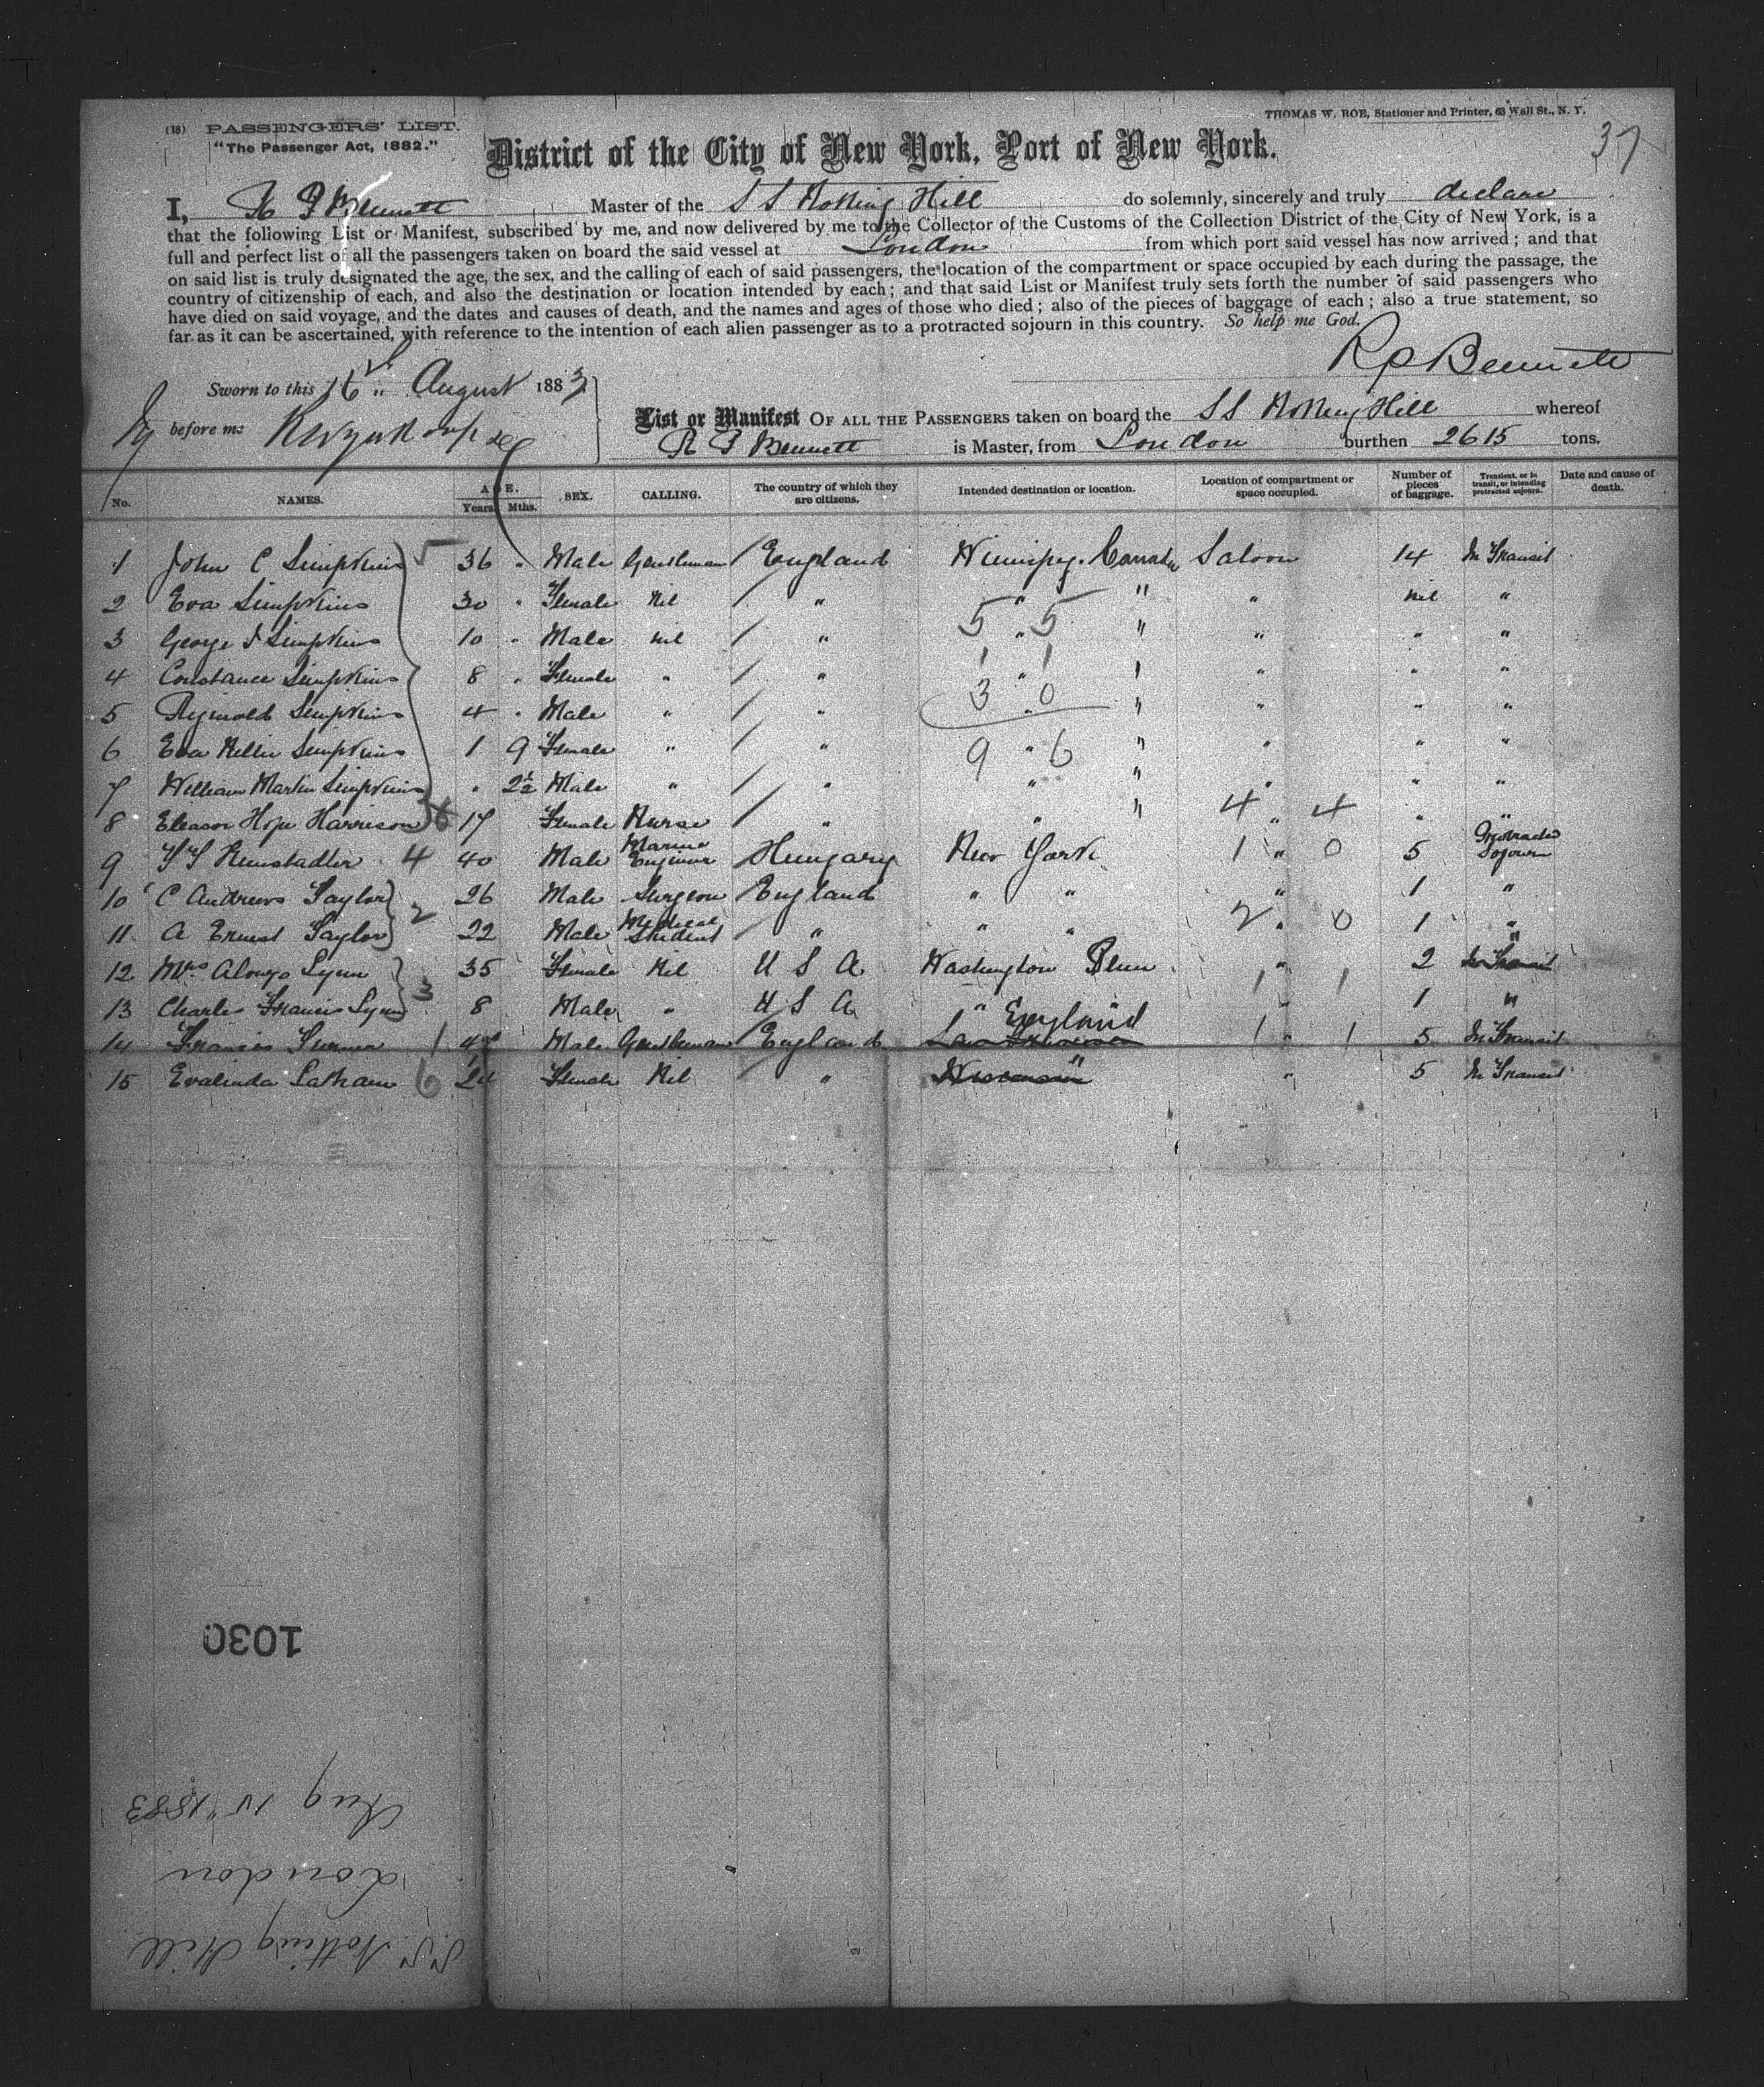 (13) PASSENGERS' LIST.
"The Passenger Act, 1882."
THOMAS W. ROE, Stationer and Printer, 63 Wall St., N. Y.
37
District of the City of New York, Port of New York.
I, R P Bennett Master of the S S Notting Hill do solemnly, sincerely and truly declare
that the following List or Manifest, subscribed by me, and now delivered by me to the Collector of the Customs of the Collection District of the City of New York, is a
full and perfect list of all the passengers taken on board the said vessel at London from which port said vessel has now arrived; and that
on said list is truly designated the age, the sex, and the calling of each of said passengers, the location of the compartment or space occupied by each during the passage, the
country of citizenship of each, and also the destination or location intended by each; and that said List or Manifest truly sets forth the number of said passengers who
have died on said voyage, and the dates and causes of death, and the names and ages of those who died; also of the pieces of baggage of each; also a true statement, so
far as it can be ascertained, with reference to the intention of each alien passenger as to a protracted sojourn in this country. So help me God.
R P Bennett
Sworn to this 16 " August 1883
before me
List or Manifest OF ALL THE PASSENGERS taken on board the S S Notting Hill whereof
R P Bennett is Master, from London burthen 2615 tons.
No. NAMES. AGE. Years. Mths. SEX. CALLING. The country of which they are citizens. Intended destination or location. Location of compartment or space occupied. Number of pieces of baggage. Transient, or in transit, or intending protracted sojourn. Date and cause of death.
1 John C Simpkins 36 " Male Gentleman England Winnipeg. Canada Saloon 14 In Transit
2 Eva Simpkins 30 " Female Nil " " " " nil "
3 George Simpkins 10 " Male nil " " " " " "
4 Constance Simpkins 8 " Female " " " " " " "
5 Reginald Simpkins 4 " Male " " " " " " "
6 Eva Nellie Simpkins 1 9 Female " " " " " " "
7 William Martin Simpkins " 2½ Male " " " " " " "
8 Eleanor Hope Harrison 17 Female Nurse " " " " " "
9 40 Male Marine Engineer Hungary New York " 5 Protracted Sojourn
10 C Andrews Taylor 26 Male Surgeon England " " " 1 "
11 A Ernest Taylor 22 Male Medical Student " " " " 1 "
12 Mrs Alonzo Lynn 35 Female Nil U S A Washington Penn " 2 In Transit "
13 Charles Francis Lynn 8 Male " U S A " " 1 "
14 Francis Male Gentleman England England " 5 In Transit
15 Evalinda Latham 24 Female Nil " " " 5 In Transit
5 5
1 1
3 0
9 6
4 4
1 0
2 0
1 1
1 1
1030
S.S. Notting Hill
London
Aug 15 1883